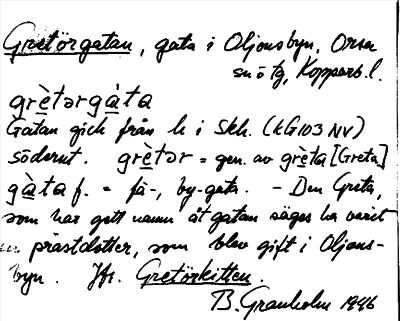 Gretörgatan, gata i Oljonsbyn, Orsa
sn o tg, Kopparb.l.
grètərgàta
Gatan gick från h i Skh. (kG103 NV)
söderut. grètər = gen. av grèta [Greta]
gàta f. = fä-, by-gata. - Den Greta,
som har gett namn åt gatan säges ha varit
en prästdotter, som blev gift i Oljons-
byn. Jfr. Gretörkitten.
B. Granholm 1946